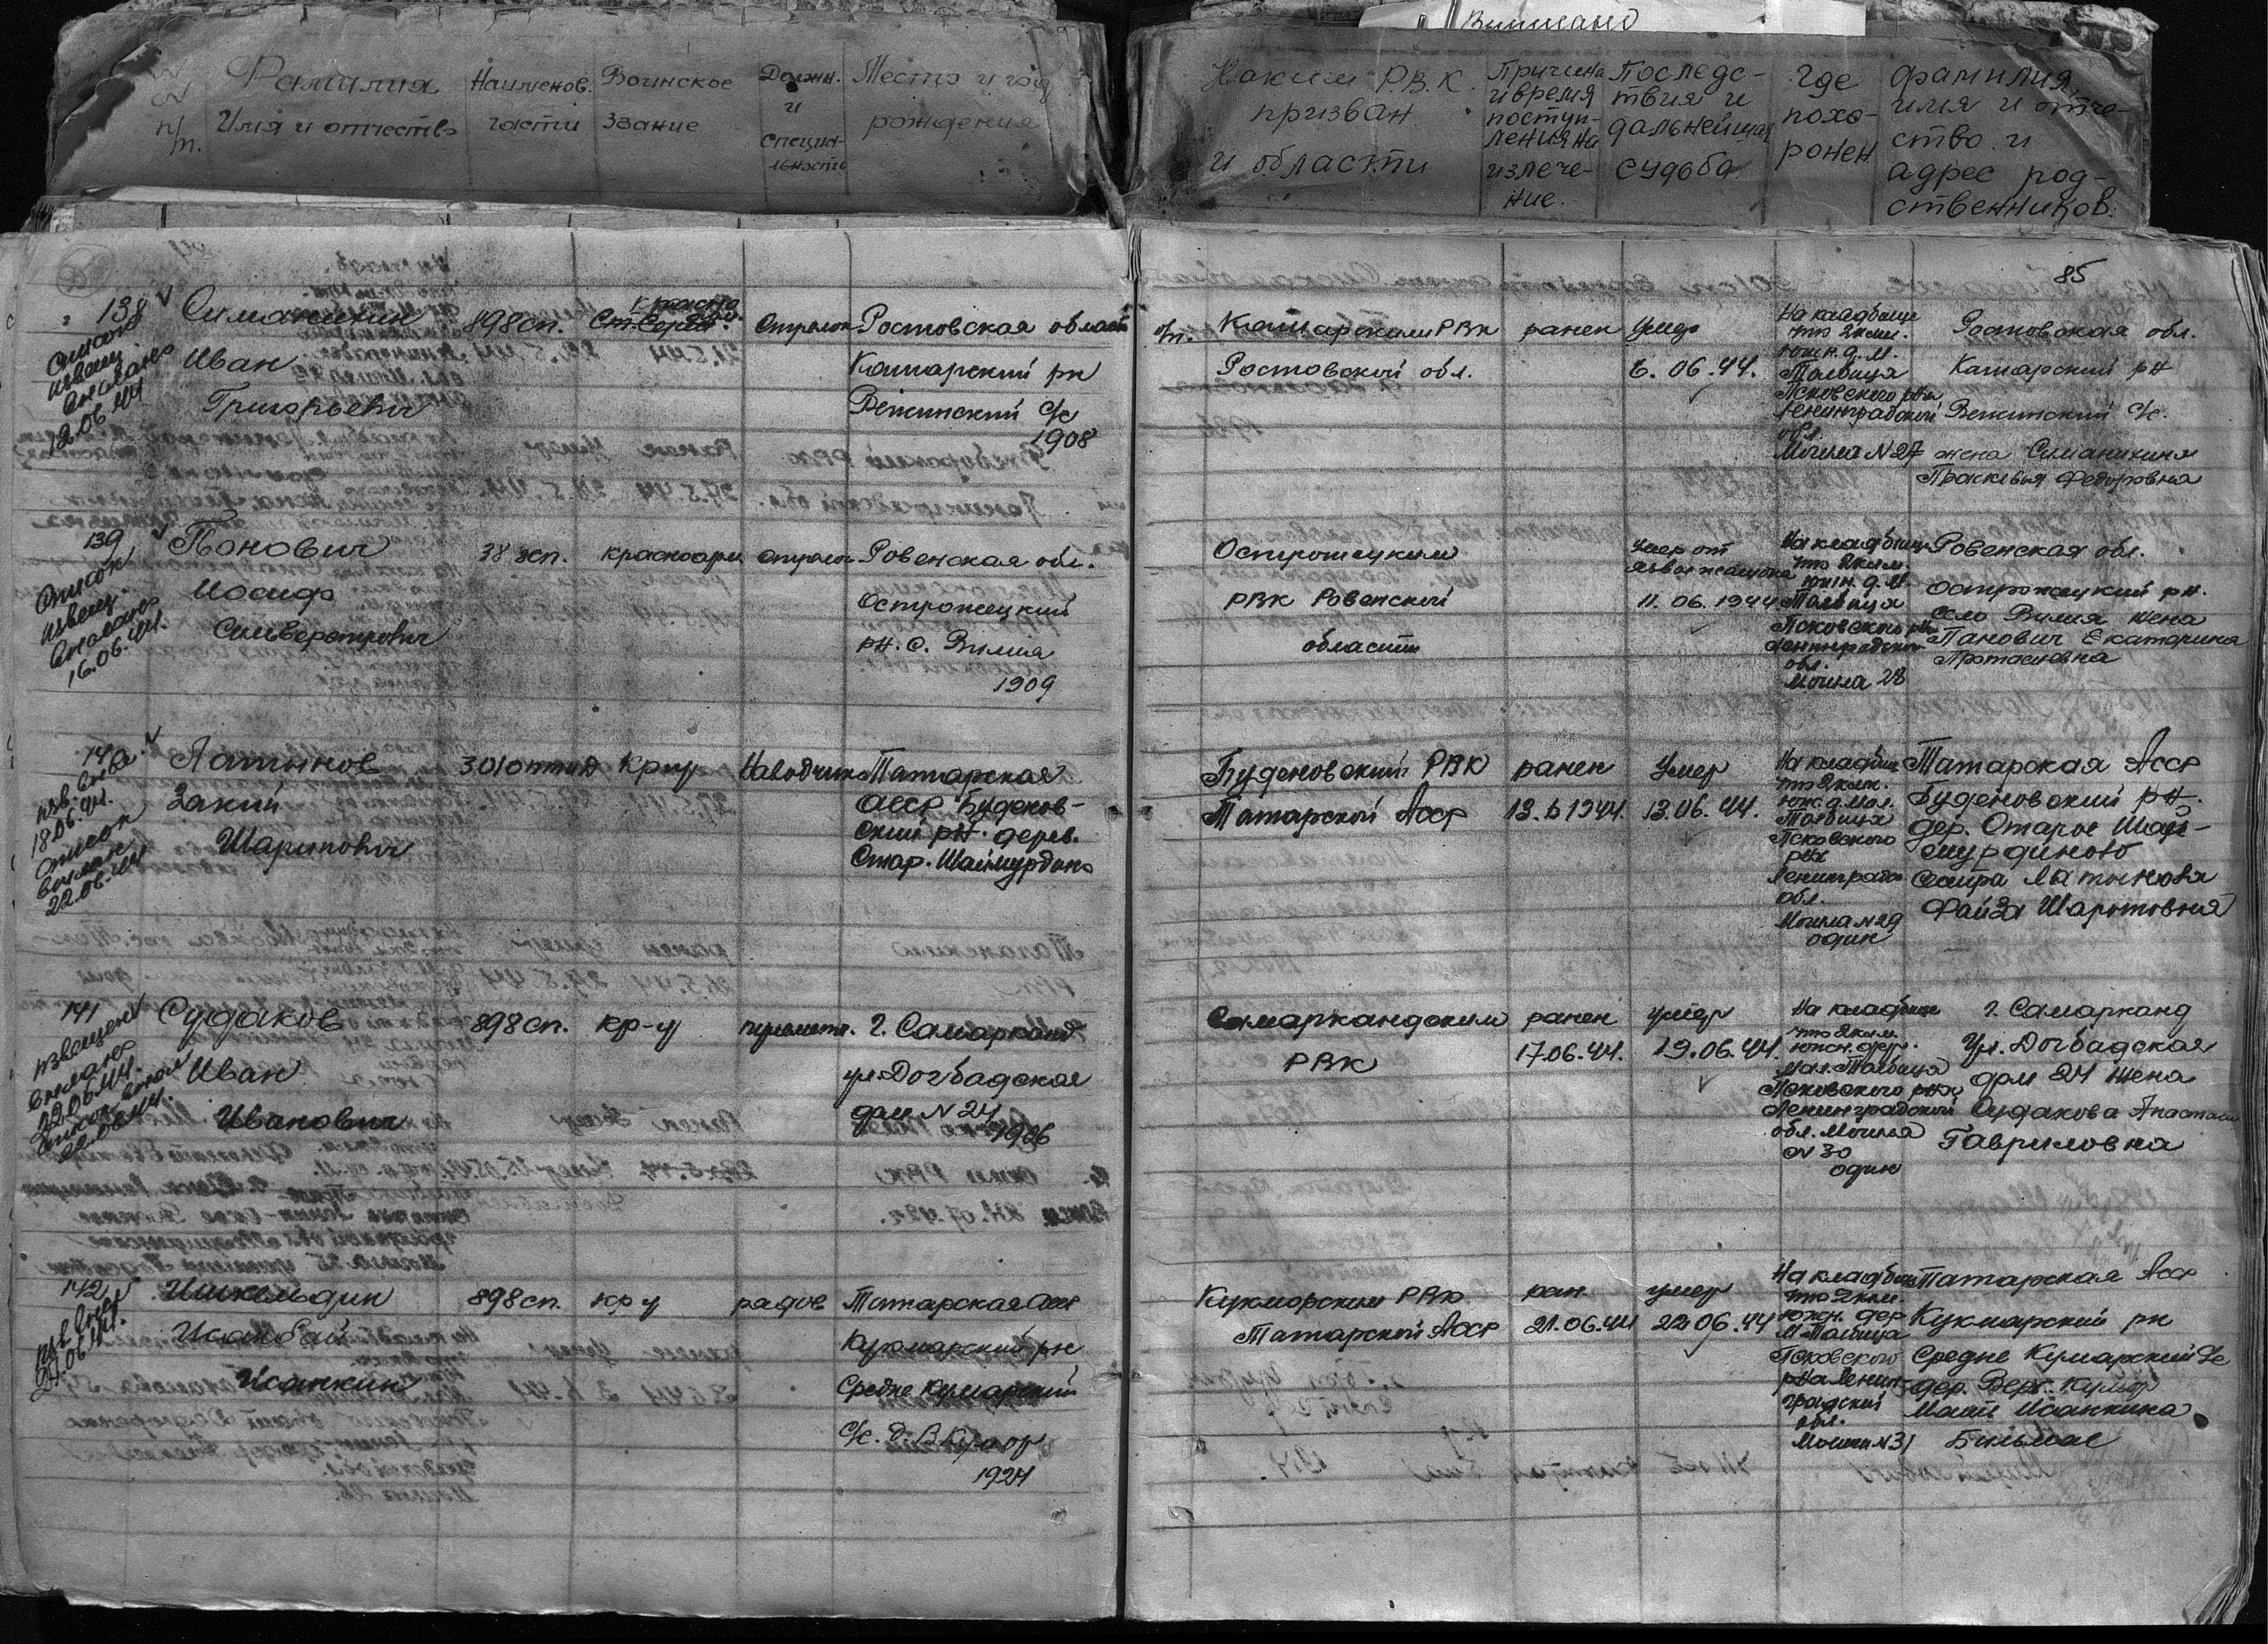 Фамилия
Имя и отчество
Наименов.
части
Воинское
Звание
Должн.
и
специа-
льность
Место и год
рождения
Каким Р.В.К.
призван
и области
Причина
и время
поступ-
ления на
излече-
ние.
Последс-
твия и
дальнейшая
судьба
Где
похо-
ронен
Фамилия,
имя и отче-
ство и
адрес род-
ственников.
85
138
список
извещ.
выслано
12.06.44
Симаникин
Иван
Григорьевич
898 сп.
Красно
Ст. Серж.
стрелок
Ростовская область
Кашарский рн
Вежинский с/с
1908
Кашарским РВК
Ростовской обл.
ранен
умер
6.06.44.
На кладбище
что 2 клм.
южн. д. М.
Толбица
Псковского р-на
Ленинградской
обл.
Могила N 27
Ростовская обл.
Кашарский рн
Вежинский с/с.
жена Симаникина
Прасковья Федоровна
139
список
извещ.
выслано
16.06.44.
Панович
Иосиф
Сильверстрович
38 зсп.
красноарм
стрелок
Ровенская обл.
Острожецкий
рн. с. Вилия
1909
Острожецким
РВК Ровенской
области
умер от
11.06.1944
На кладбище
что 2 клм.
южн. д. М.
Толбица
Псковского р-на
Ленинградской
обл.
Могила 28
Ровенская обл.
Острожецкий рн.
село Вилия жена
Панович Екатерина
18.06.44.
список
выслан
22.06.44
Латыпов
Закий
Шарипович
кр-ц
Наводчик
Татарская
АССР Буденов-
ский рн. дерев.
Стар. Шаймурдино
Буденовский РВК
Татарской АССР
ранен
13.6.1944.
умер
13.06.44.
На кладбище
что 2 клм.
южн. д. Мал.
Толбица
Псковского
рна
Ленинградс
обл.
Могила N 29
один
Татарская АССР
Буденовский рн.
дер. Старое Шай-
мурдиново
сестра Латыпова
Файза Шариповна
141
извещен
выслано
22.06.44.
Судаков
Иван
Иванович
898 сп.
кр-ц
пулеметч.
г. Самарканд
ул. Догбадская
дом N 24
1906
Самаркандским
РВК
ранен
17.06.44.
умер
19.06.44.
На кладбище
что 2 клм.
южн. дер.
Мал. Толбица
Псковского рна
Ленинградской
обл. Могила
N 30
один
г. Самарканд
Ул. Догбадская
дом 24 жена
Судакова Анастасия
Гавриловна
142
Ишкельдин
Исанбай
Исанкин
898 сп.
кр-ц
рядов
Татарская АССР
Кукморский рн
Средне Кумарский
с/с. д. В Кумор
1924
Кукморским РВК
Татарской АССР
ран.
21.06.44
умер
22.06.44
На кладбище
что 2 клм.
южн. дер
М. Толбица
Псковского
рна Ленин-
градской
обл.
Могила N 31
Татарская АССР
Кукмарский рн
Средне Кумарский с/с
дер. Верх. Кумор
Мать Исанкина